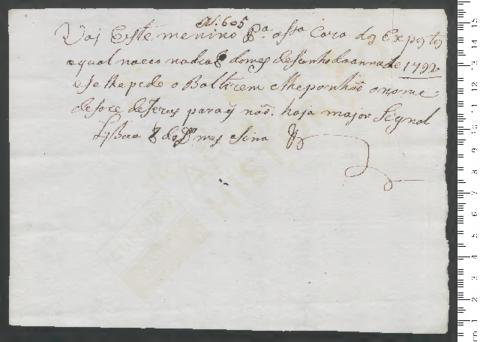 N. 605
Vai Este menino Pa. ossa Caza dos Expostos
aqual naceo nodia 8 domes deJunho do anno de 1792
e se lhe pede o Baltizem e lhe ponhão o nome
de Joze de Jezus para q̃ não haja major Signal
Lxboa 8 do do. mes e